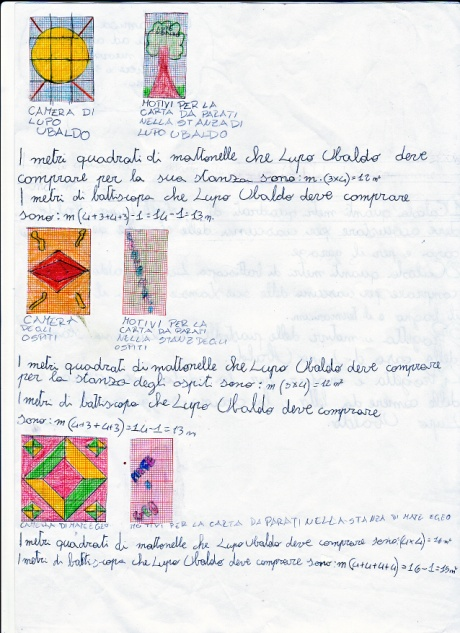 CAMERA DI
LUPO
UBALDO
MOTIVI PER LA
CARTA DA PARATI
NELLA STANZA DI
LUPO UBALDO
I metri quadrati di mattonelle che Lupo Ubaldo deve
comprare per la sua stanza sono: m (3x4)=12 m²
I metri di battiscopa che Lupo Ubaldo deve comprare
sono: m (4+3+4+3)-1=14-1=13 m
CAMERA
DEGLI
OSPITI
MOTIVI PER LA
CARTA DA PARATI
NELLA STANZ DEGLI
OSPITI
I metri quadrati di mattonelle che Lupo Ubaldo deve comprare
per la stanza degli ospiti sono: m (3x4)=12 m²
I metri di battiscopa che Lupo Ubaldo deve comprare
sono: m (4+3+4+3)=14-1=13 m
CAMERA DI MATE E GEO
MOTIVI PER LA CARTA DA PARATI NELLA STANZA DI MATE E GEO
MATE
E
GEO
I metri quadrati di mattonelle che Lupo Ubaldo deve comprare sono: (4x4)=16 m²
I metri di battiscopa che Lupo Ubaldo deve comprare sono: m (4+4+4+4)=16-1=15 m